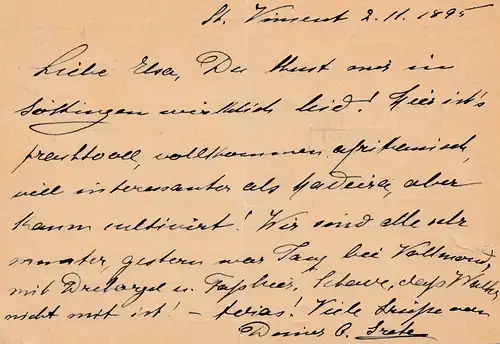 St. Vincent 2.11.1895
Liebe Elsa, Du thust mir in
Göttingen wirklich leid! Hier ist's
prachtvoll, vollkommen afrikanisch,
viel interessanter als Madeira, aber
kaum cultivirt! Wir sind alle sehr
munter, gestern war Tanz bei Vollmond,
mit Drehorgel u. Faßbier, Schade, daß Walther
nicht mit ist! – Viele Grüße von
Deiner